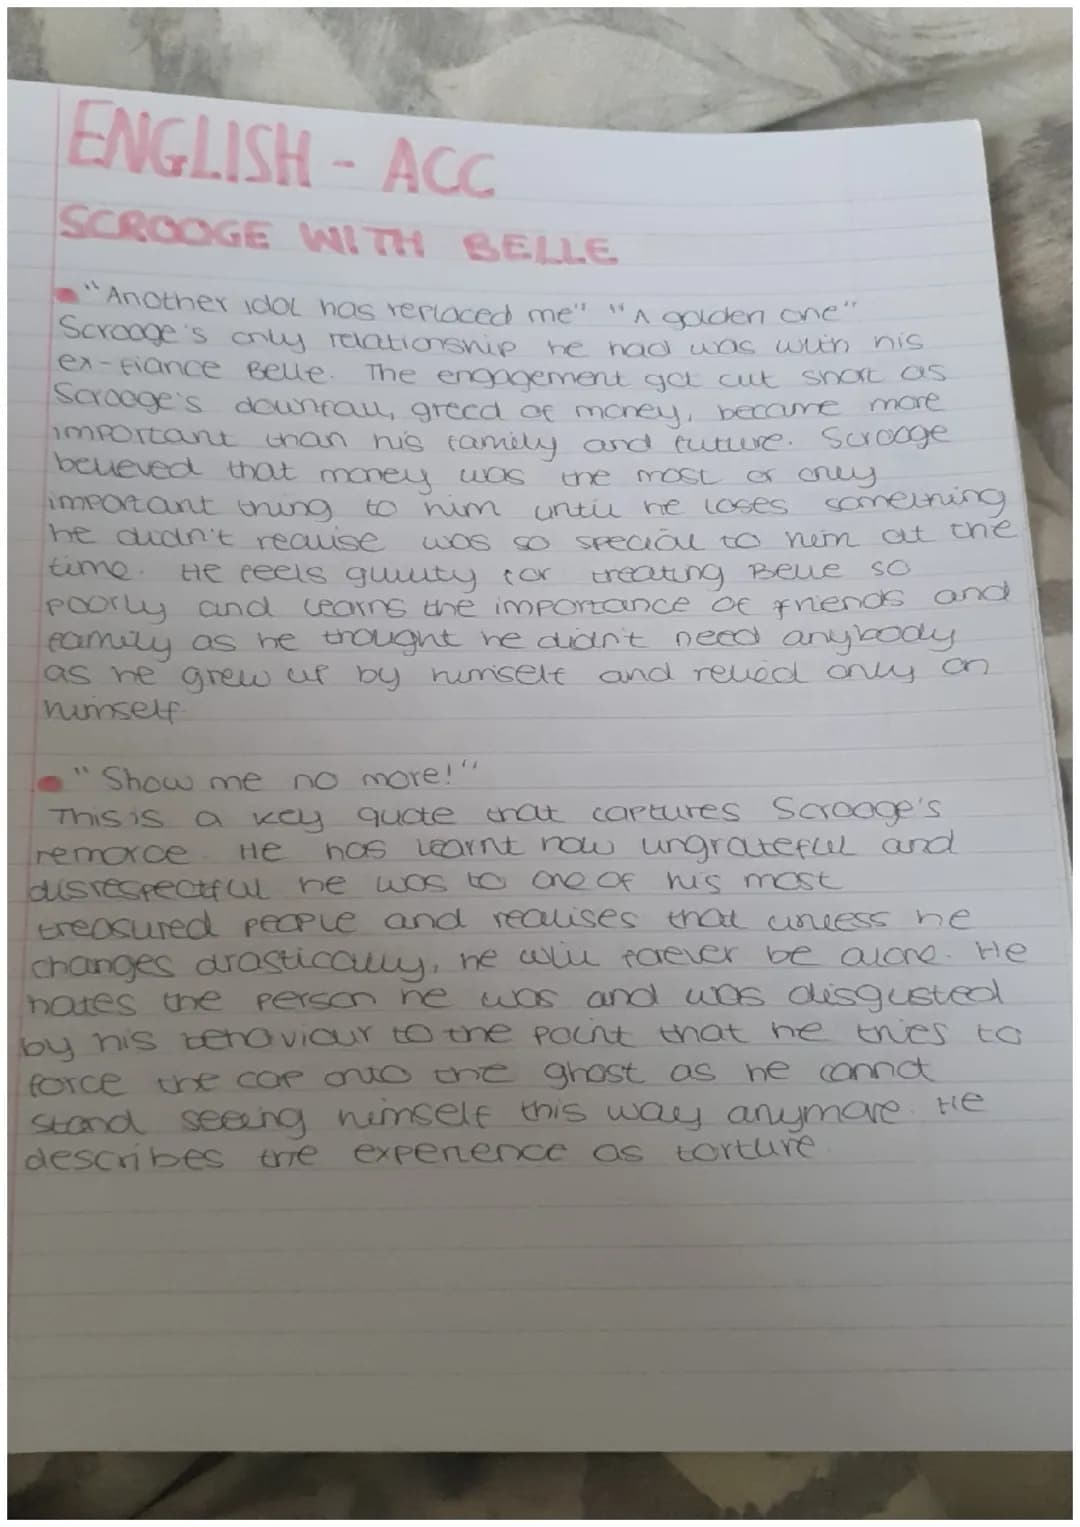 ENGLISH - ACC
SCROOGE WITH BELLE
"Another idol has replaced me" "A golden one"
Scrooge's only relationship he had was with his
ex-fiance Belle. The engagement got cut short as
Scrooge's downfall, greed of money, became more
important than his family and future. Scrooge
believed that money was the most or only
important thing to him until he loses something
he didn't realise was so special to him at the
time. He feels guilty for treating Belle so
poorly and learns the importance of friends and
family as he thought he didn't need anybody
as he grew up by himself and relied only on
himself.
"Show me no more!"
This is a key quote that captures Scrooge's
remorce. He has learnt how ungrateful and
disrespectful he was to one of his most
treasured people and realises that unless he
changes drastically, he will forever be alone. He
hates the person he was and was disgusted
by his behaviour to the point that he tries to
force the cap onto the ghost as he cannot
stand seeing himself this way anymore. He
describes the experience as torture.